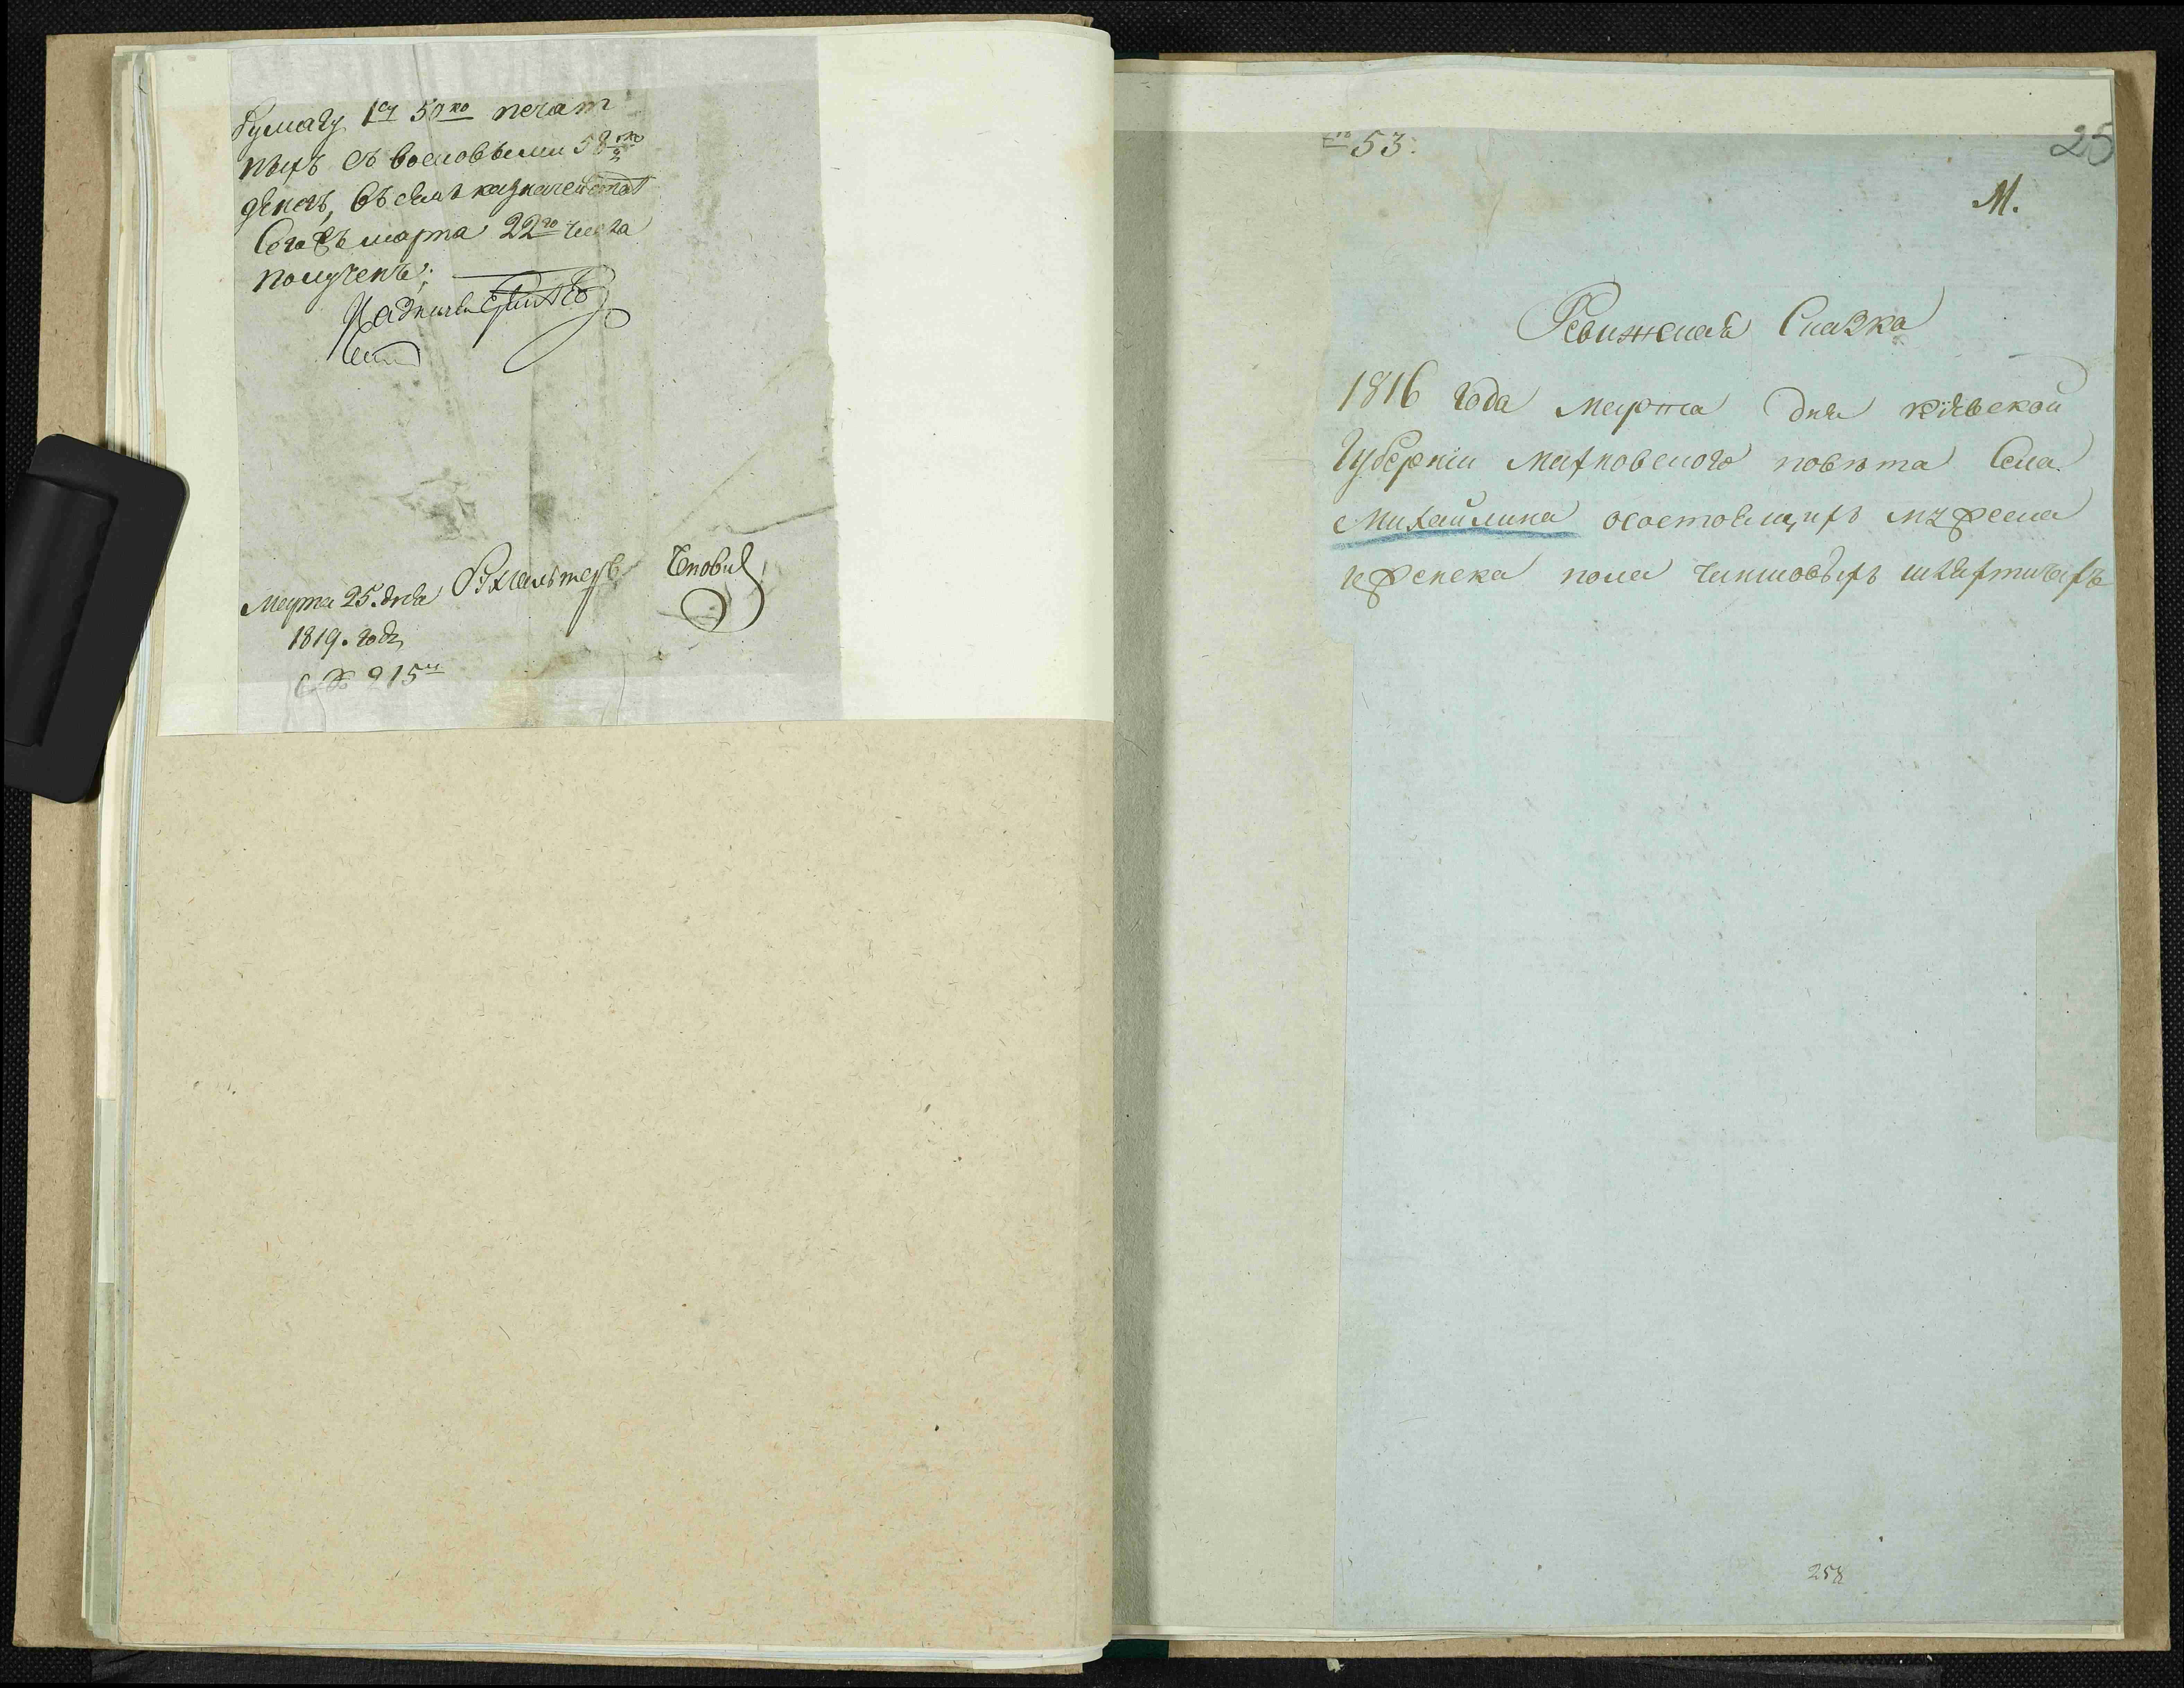 бумагу 1й 50ко печат
ныхъ съ восковыми 58
денегъ, въ семъ казначействѣ
сего марта 22го числа
получены;
Марта 25. дня Бухгалтеръ
1819. года
№ 215й
№ 53.
25
М.
Ревижская Сказка
1816 года Марта дня киевской
Губернии Махновского повѣта Села
Михайлина осостоящихъ мужеска
иженска пола чиншовыхъ шляхтичахъ
258